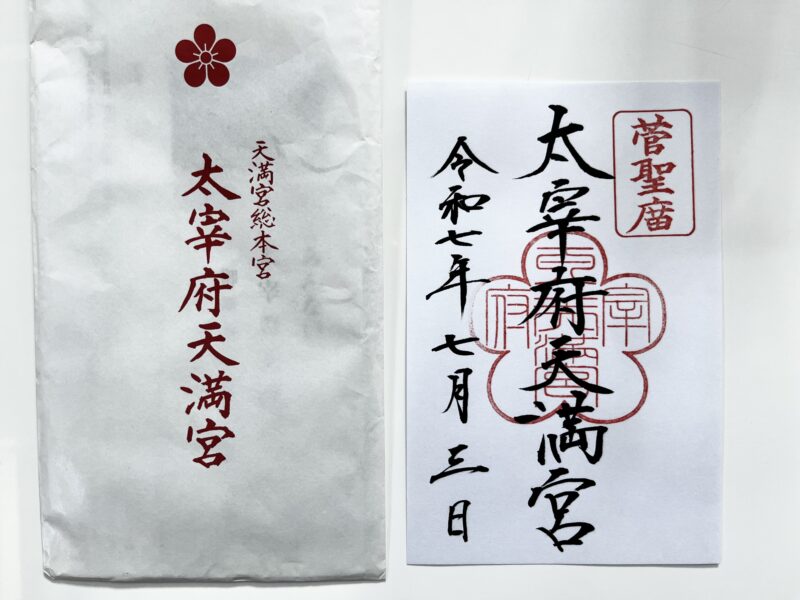 天満宮総本宮
太宰府天満宮
菅聖廟
太宰府天満宮
令和七年七月三日